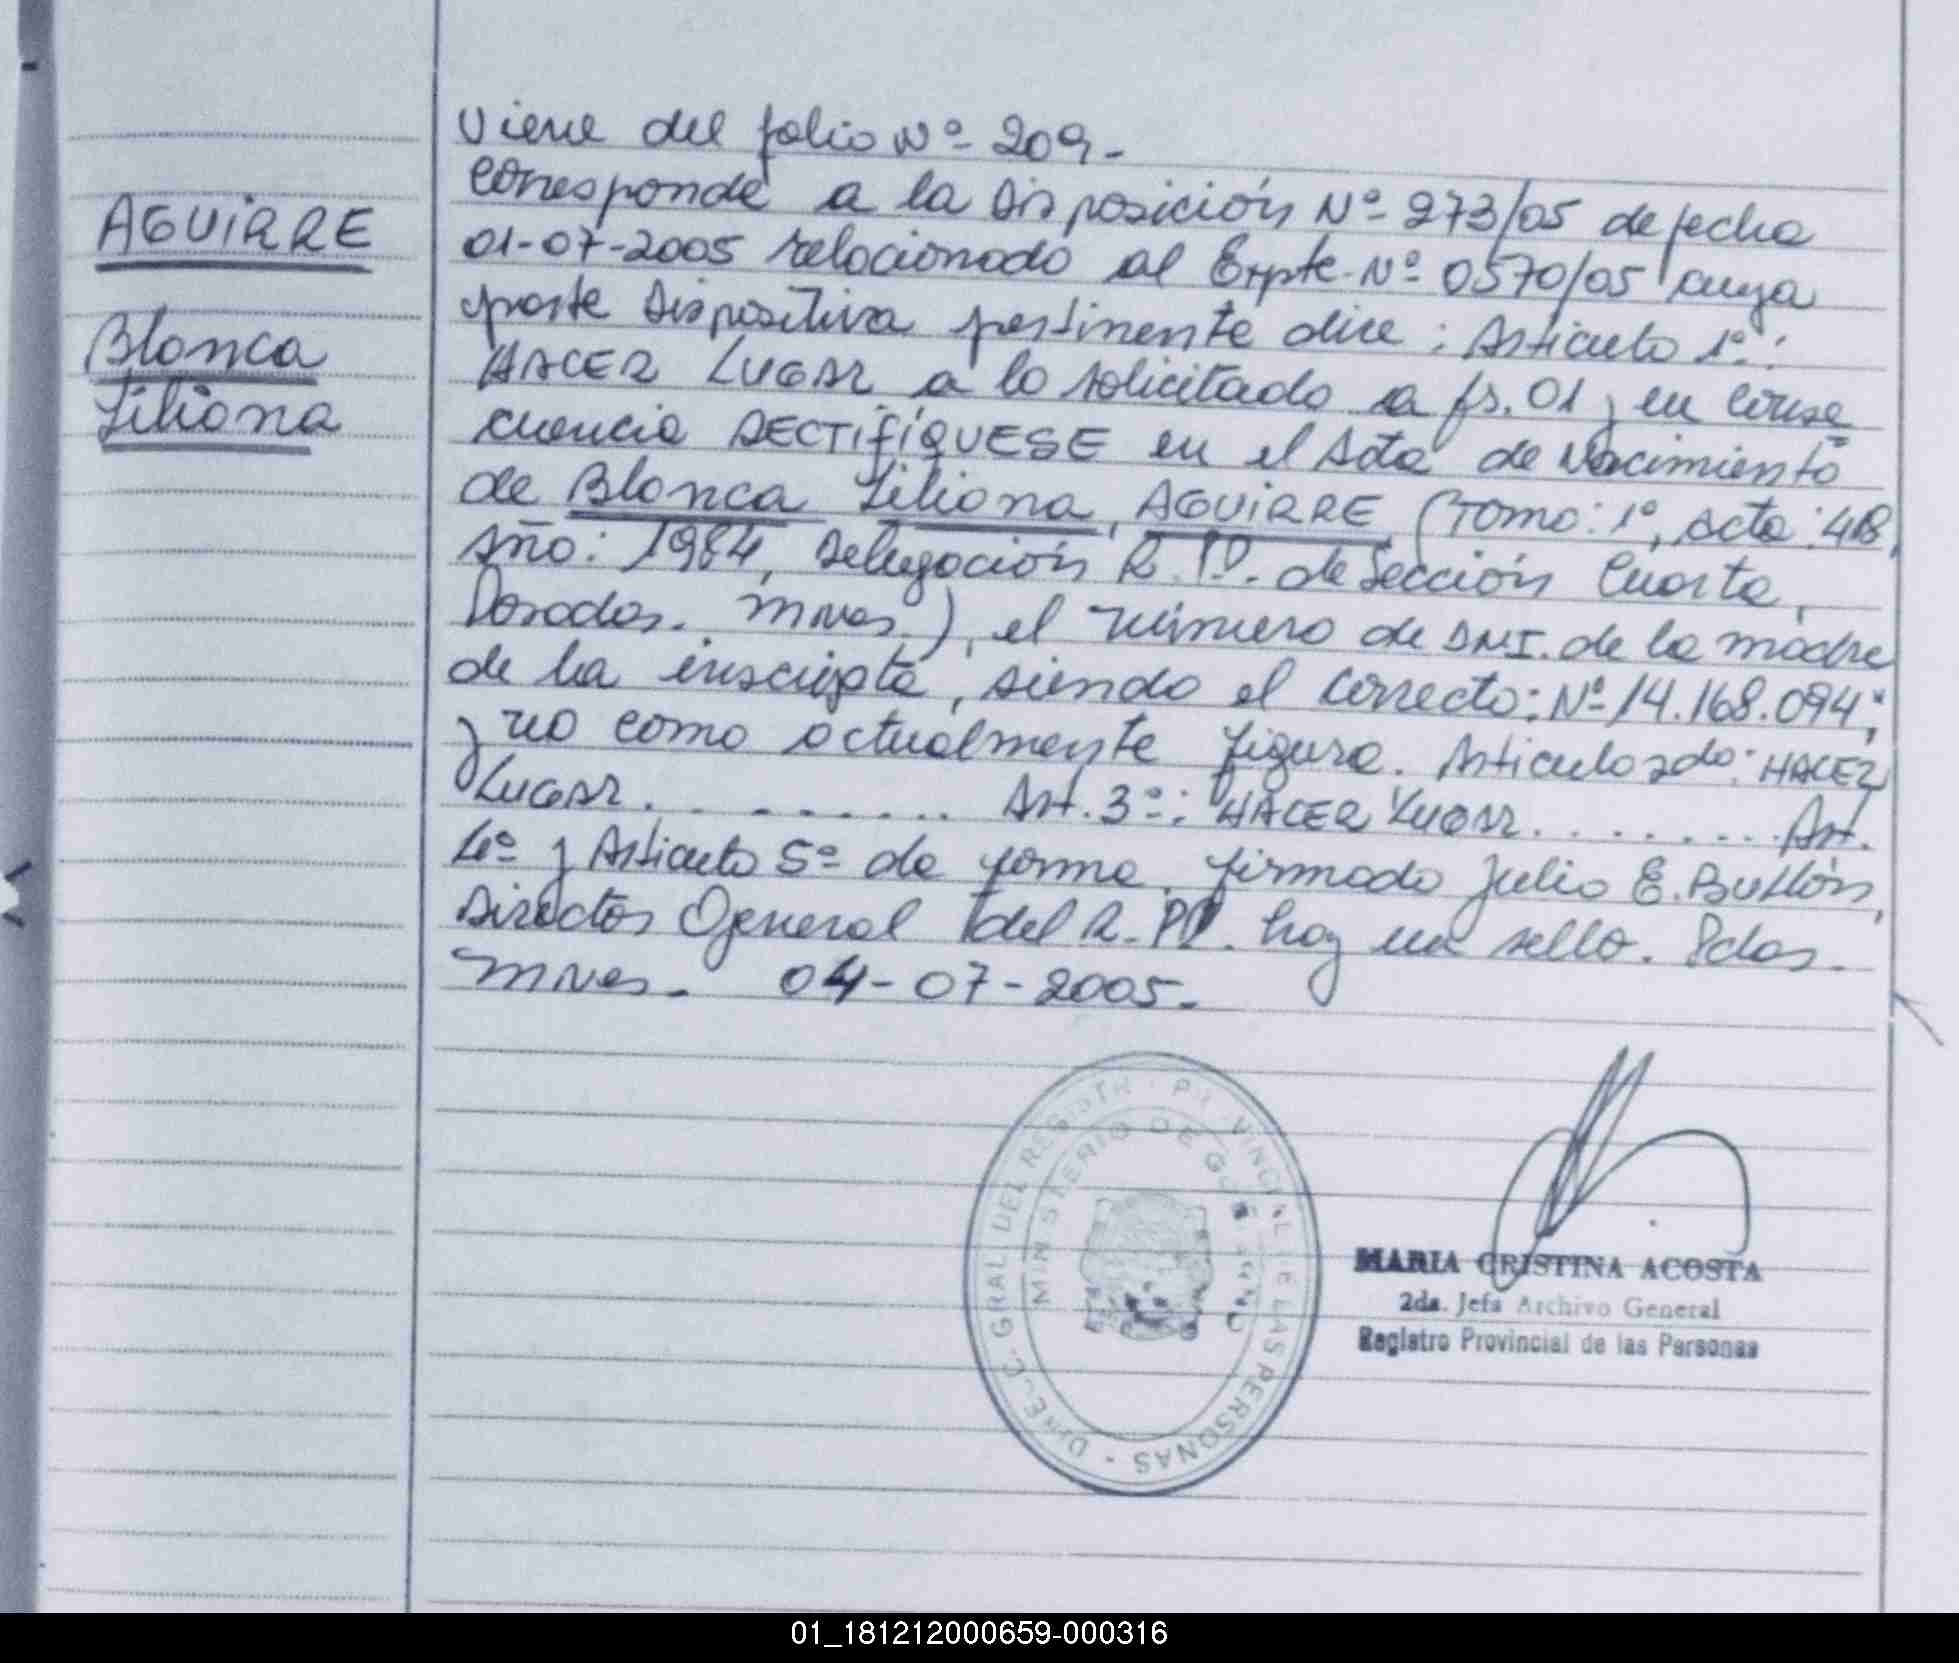 AGUIRRE
Blanca
Liliana
Viene del folio Nº 209-
Corresponde a la Disposición Nº 273/05 de fecha
01-07-2005 relacionado al Expte. Nº 0570/05 cuya
parte Dispositiva pertinente dice: Articulo 1º:
HACER LUGAR a lo solicitado a fs. 01 y en conse
cuencia RECTIFÍQUESE en el Acta de Nacimiento
de Blanca Liliana, AGUIRRE (Tomo: 1º, Acta: 418,
Año: 1984, Delegación R.P.P. de Sección Cuarta,
Posadas. Mnes.), el número de DNI. de la madre
de la inscripta, siendo el correcto: Nº 14.168.094;
y no como actualmente figura. Articulo 2do: HACER
LUGAR. . . . . . . . . Art. 3º: HACER LUGAR. . . . . . . . Art.
4º y Articulo 5º de forma. firmado Julio E. Bullón,
Director General del R.PP. hay un sello. Pdas.
Mnes. 04-07-2005.
DIREC. GRAL DEL REGISTR PROVINCIAL DE LAS PERSONAS -
MINISTERIO DE GOBIERNO
MARIA CRISTINA ACOSTA
2da. Jefa Archivo General
Registro Provincial de las Personas
01_181212000659-000316